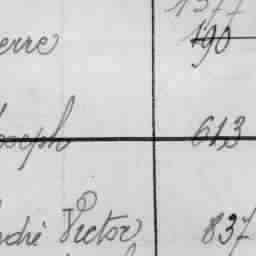 1377
erre 190
oseph 613
ndré Victor 837